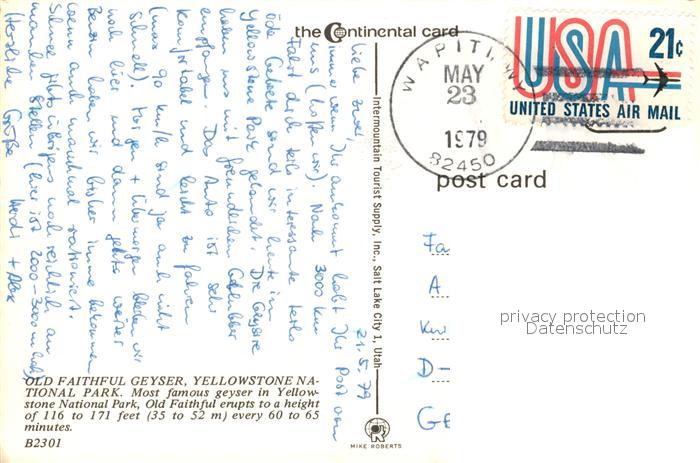 the Continental card
USA 21c
UNITED STATES AIR MAIL
WAPITI, WY
MAY
23
1979
82450
post card
Intermountain Tourist Supply, Inc., Salt Lake City 1, Utah
21.5.79
Liebe zwei,
immer wenn Ihr ankommt habt Ihr Post von
uns (hoffen wir). Nach 3000 km
Fahrt durch teils interessante teils
öde Gebiete sind wir heute im
Yellowstone Park gelandet. Die Geysire
haben uns mit freundlichem
empfangen. Das Auto ist sehr
komfortabel und leicht zu fahren
(max 90 km/h sind ja auch nicht
schnell). Morgen + übermorgen bleiben wir
noch hier und dann gehts weiter
Benzin haben wir bisher immer bekommen
wenn auch manchmal rationiert.
Schnee gibts übrigens noch reichlich an
manchen Stellen (hier ist 2000-3000 m hoch)
Herzliche Grüße
Heidi +
Fa
A
D-
Ge
privacy protection
Datenschutz
OLD FAITHFUL GEYSER, YELLOWSTONE NA-
TIONAL PARK. Most famous geyser in Yellow-
stone National Park, Old Faithful erupts to a height
of 116 to 171 feet (35 to 52 m) every 60 to 65
minutes.
B2301
MIKE ROBERTS